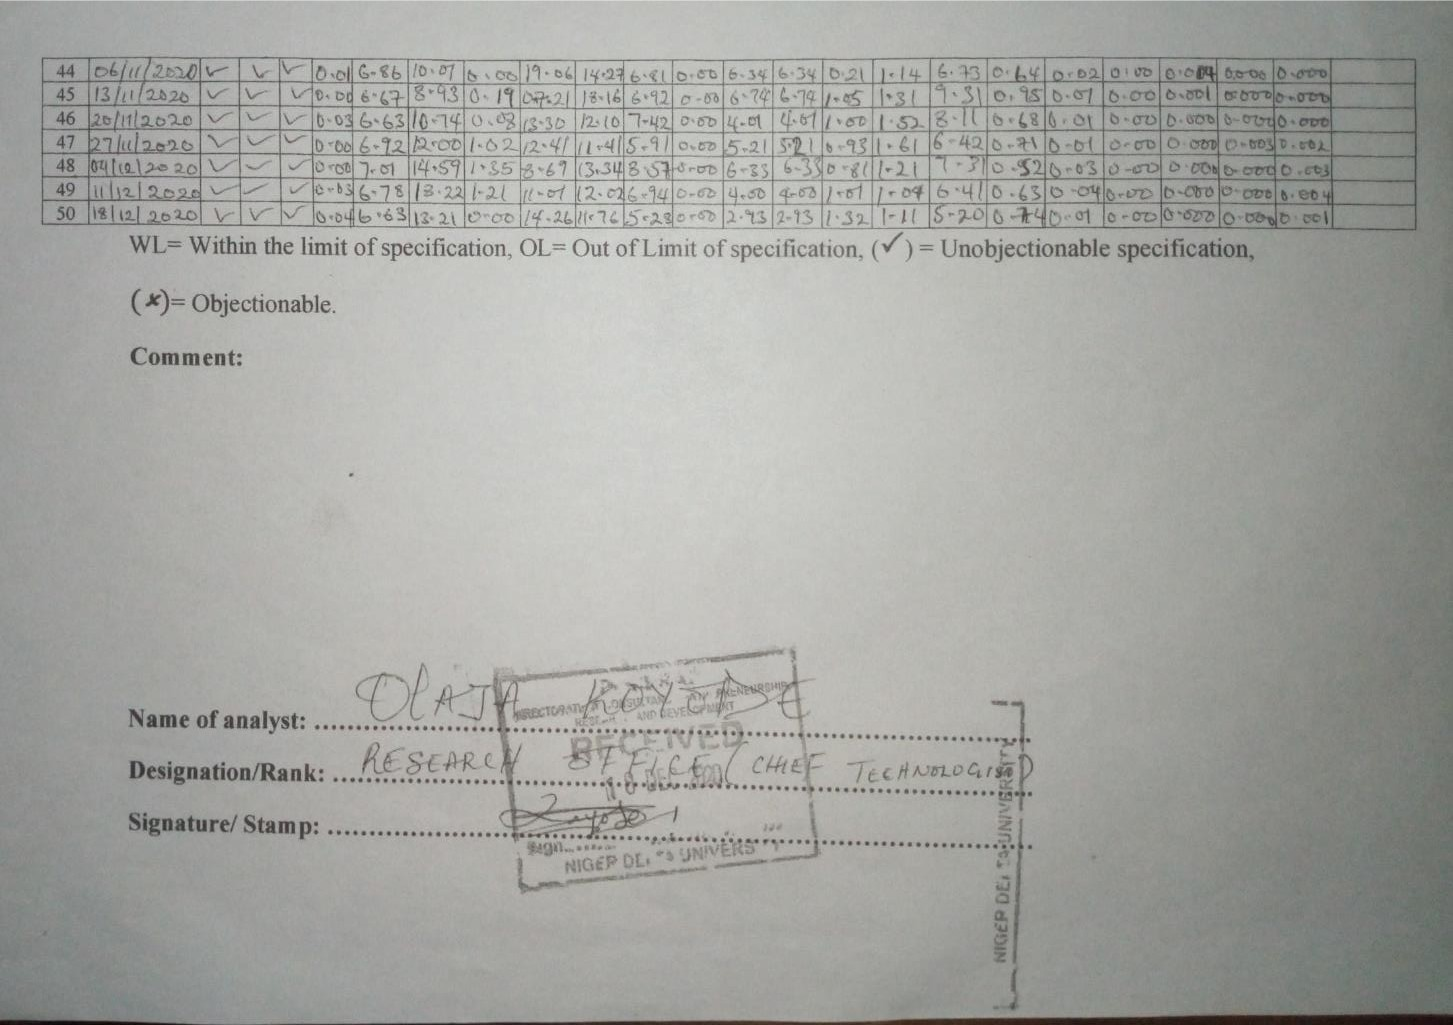 44 06/11/2020 ✓ ✓ ✓ 0.01 6.86 10.07 0.00 19.06 14.27 6.81 0.00 6.34 6.34 0.21 1.14 6.73 0.64 0.02 0.00 0.004 0.000 0.000
45 13/11/2020 ✓ ✓ ✓ 0.00 6.67 8.93 0.19 07.21 18.16 6.92 0.00 6.74 6.74 1.05 1.31 9.31 0.95 0.01 0.00 0.001 0.000 0.000
46 20/11/2020 ✓ ✓ ✓ 0.03 6.63 10.74 0.08 13.30 12.10 7.42 0.00 4.01 4.01 1.00 1.52 8.11 0.68 0.01 0.00 0.000 0.000 0.000
47 27/11/2020 ✓ ✓ ✓ 0.00 6.92 12.00 1.02 12.41 11.41 5.91 0.00 5.21 5.21 0.93 1.61 6.42 0.71 0.01 0.00 0.000 0.003 0.002
48 04/12/2020 ✓ ✓ ✓ 0.00 7.01 14.59 1.35 8.69 13.34 8.57 0.00 6.33 6.33 0.81 1.21 7.31 0.52 0.03 0.00 0.000 0.000 0.003
49 11/12/2020 ✓ ✓ ✓ 0.03 6.78 13.22 1.21 11.01 12.02 6.94 0.00 4.00 4.00 1.01 1.04 6.41 0.63 0.04 0.00 0.000 0.000 0.004
50 18/12/2020 ✓ ✓ ✓ 0.04 6.63 13.21 0.00 14.26 11.76 5.28 0.00 2.93 2.93 1.32 1.11 5.20 0.74 0.01 0.00 0.000 0.000 0.001
WL= Within the limit of specification, OL= Out of Limit of specification, (✓) = Unobjectionable specification,
(✗)= Objectionable.
Comment:
Name of analyst: OLAJA KOYODE
Designation/Rank: RESEARCH OFFICE/ CHIEF TECHNOLOGIST
Signature/ Stamp:
AND DEVELOPMENT
RECEIVED
Sign
NIGER DELTA UNIVERSITY
NIGER DELTA UNIVERSITY